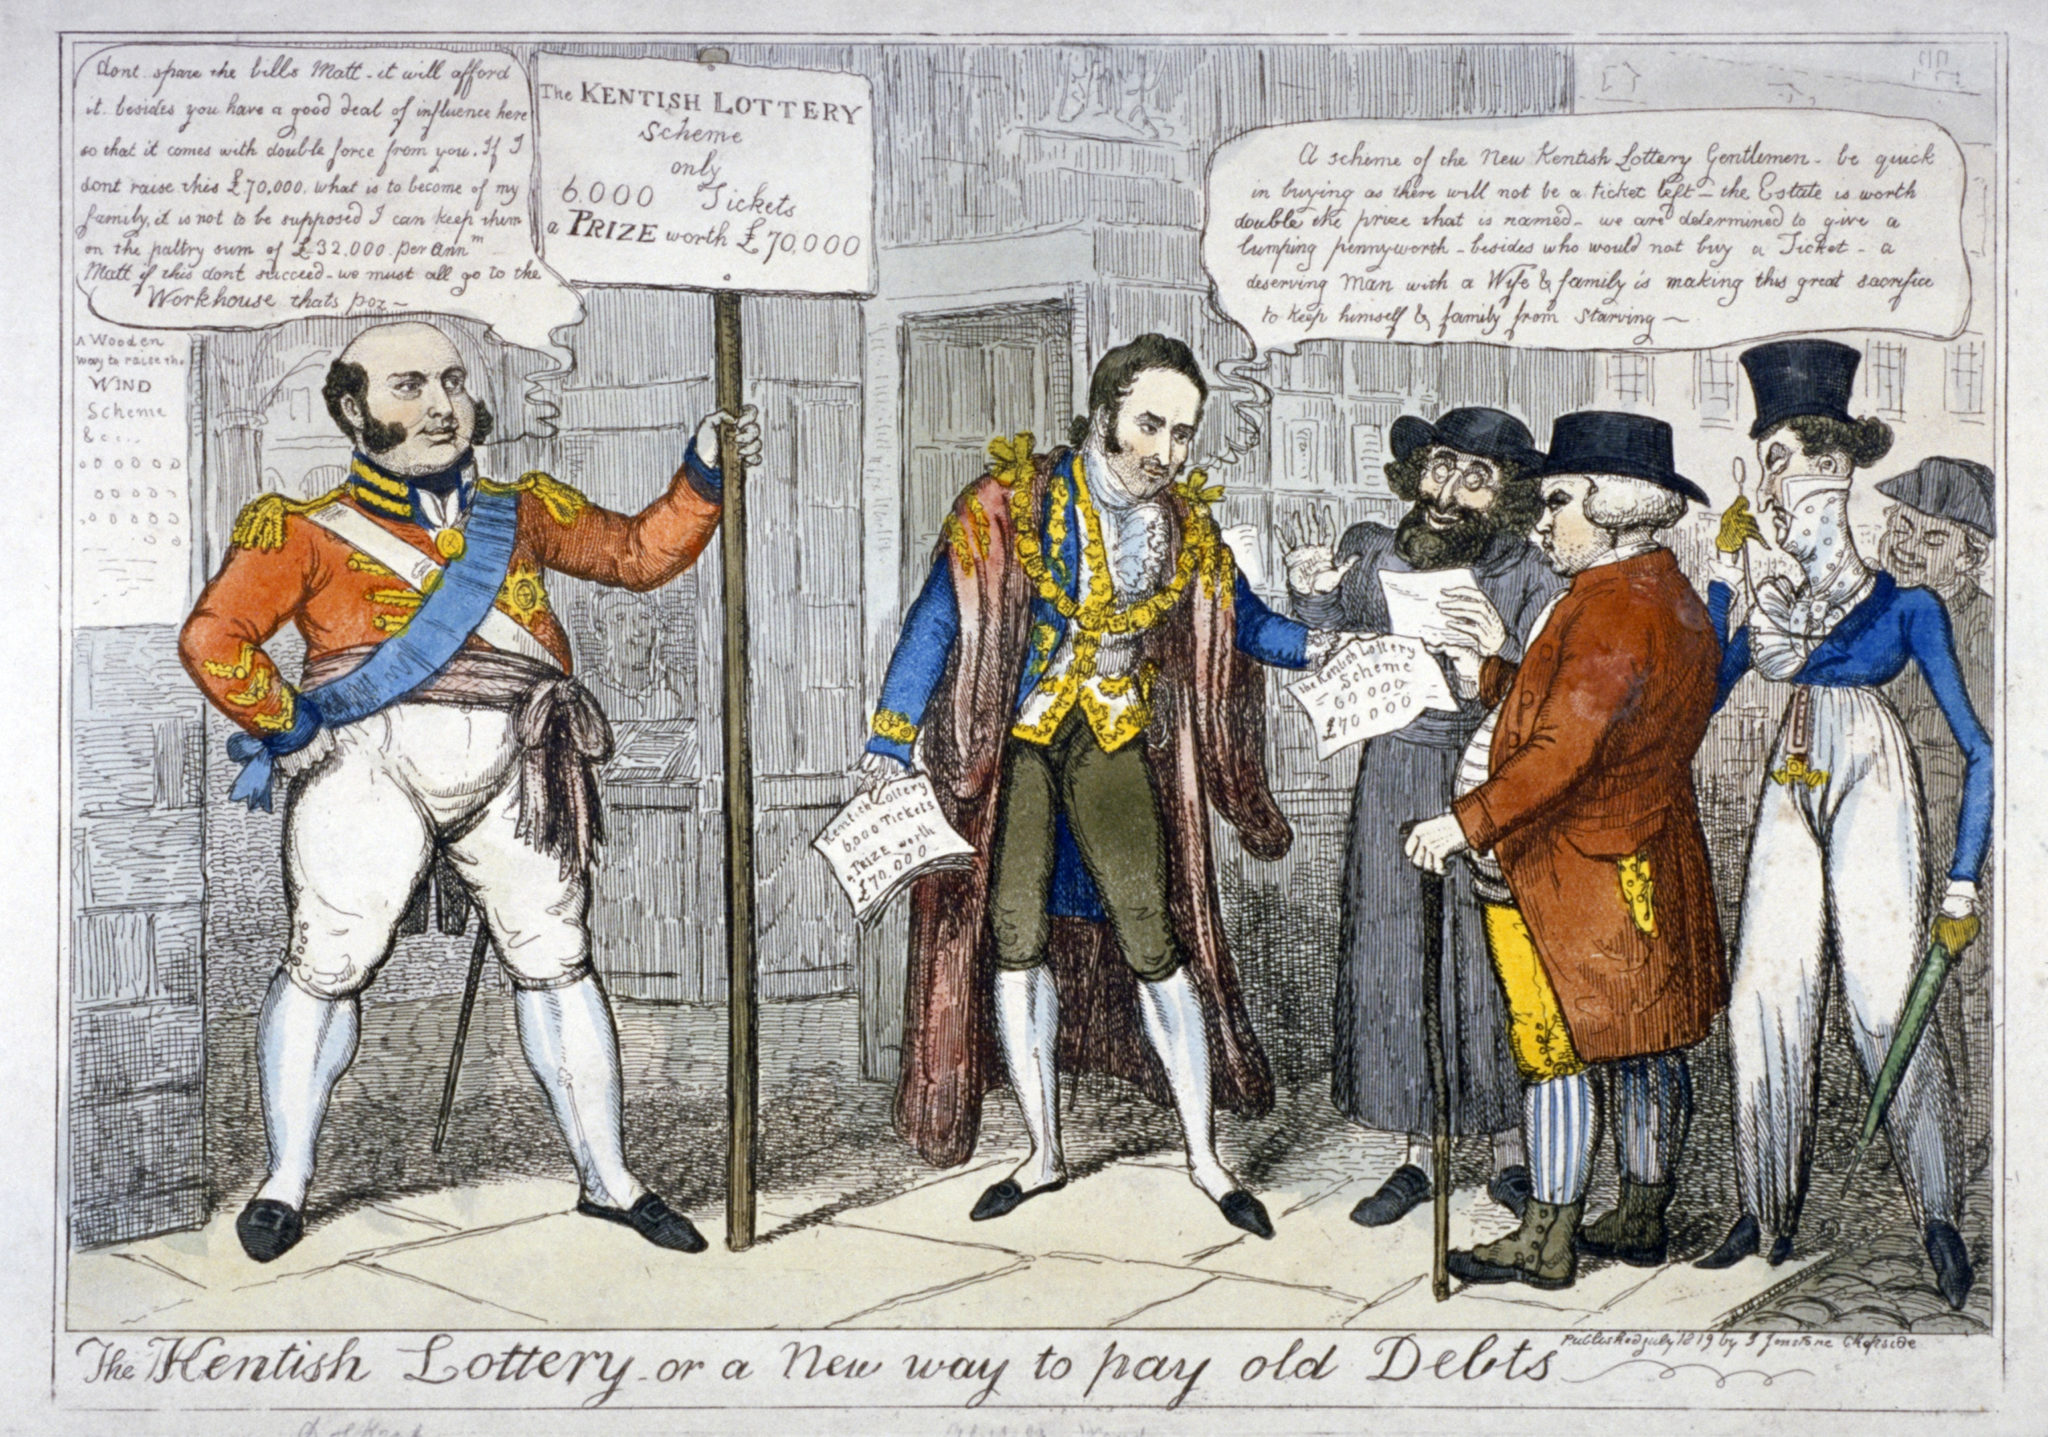 dont spare the bills Matt - it will afford
it - besides you have a good deal of influence here
so that it comes with double force from you. If I
dont raise this £70,000, what is to become of my
family, it is not to be supposed I can keep them
on the paltry sum of £32.000. per Annm
Matt if this dont succeed - we must all go to the
Workhouse thats poz -
The KENTISH LOTTERY
Scheme
only
6.000 Tickets
a PRIZE worth £70,000
A scheme of the New Kentish Lottery Gentlemen - be quick
in buying as there will not be a ticket left - the Estate is worth
double the prize that is named - we are determined to give a
lumping pennyworth - besides who would not buy a Ticket - a
deserving Man with a Wife & family is making this great sacrifice
to keep himself & family from Starving -
A Wooden
way to raise the
WIND
Scheme
&c...
00 0000 0
00 000
00 0000
000
Kentish Lottery
6,000 Tickets
a PRIZE worth
£70.000
the Kentish Lottery
Scheme
60000
£70000
The Kentish Lottery - or a New way to pay old Debts
Published July 1819 by J Jonstone Cheapside